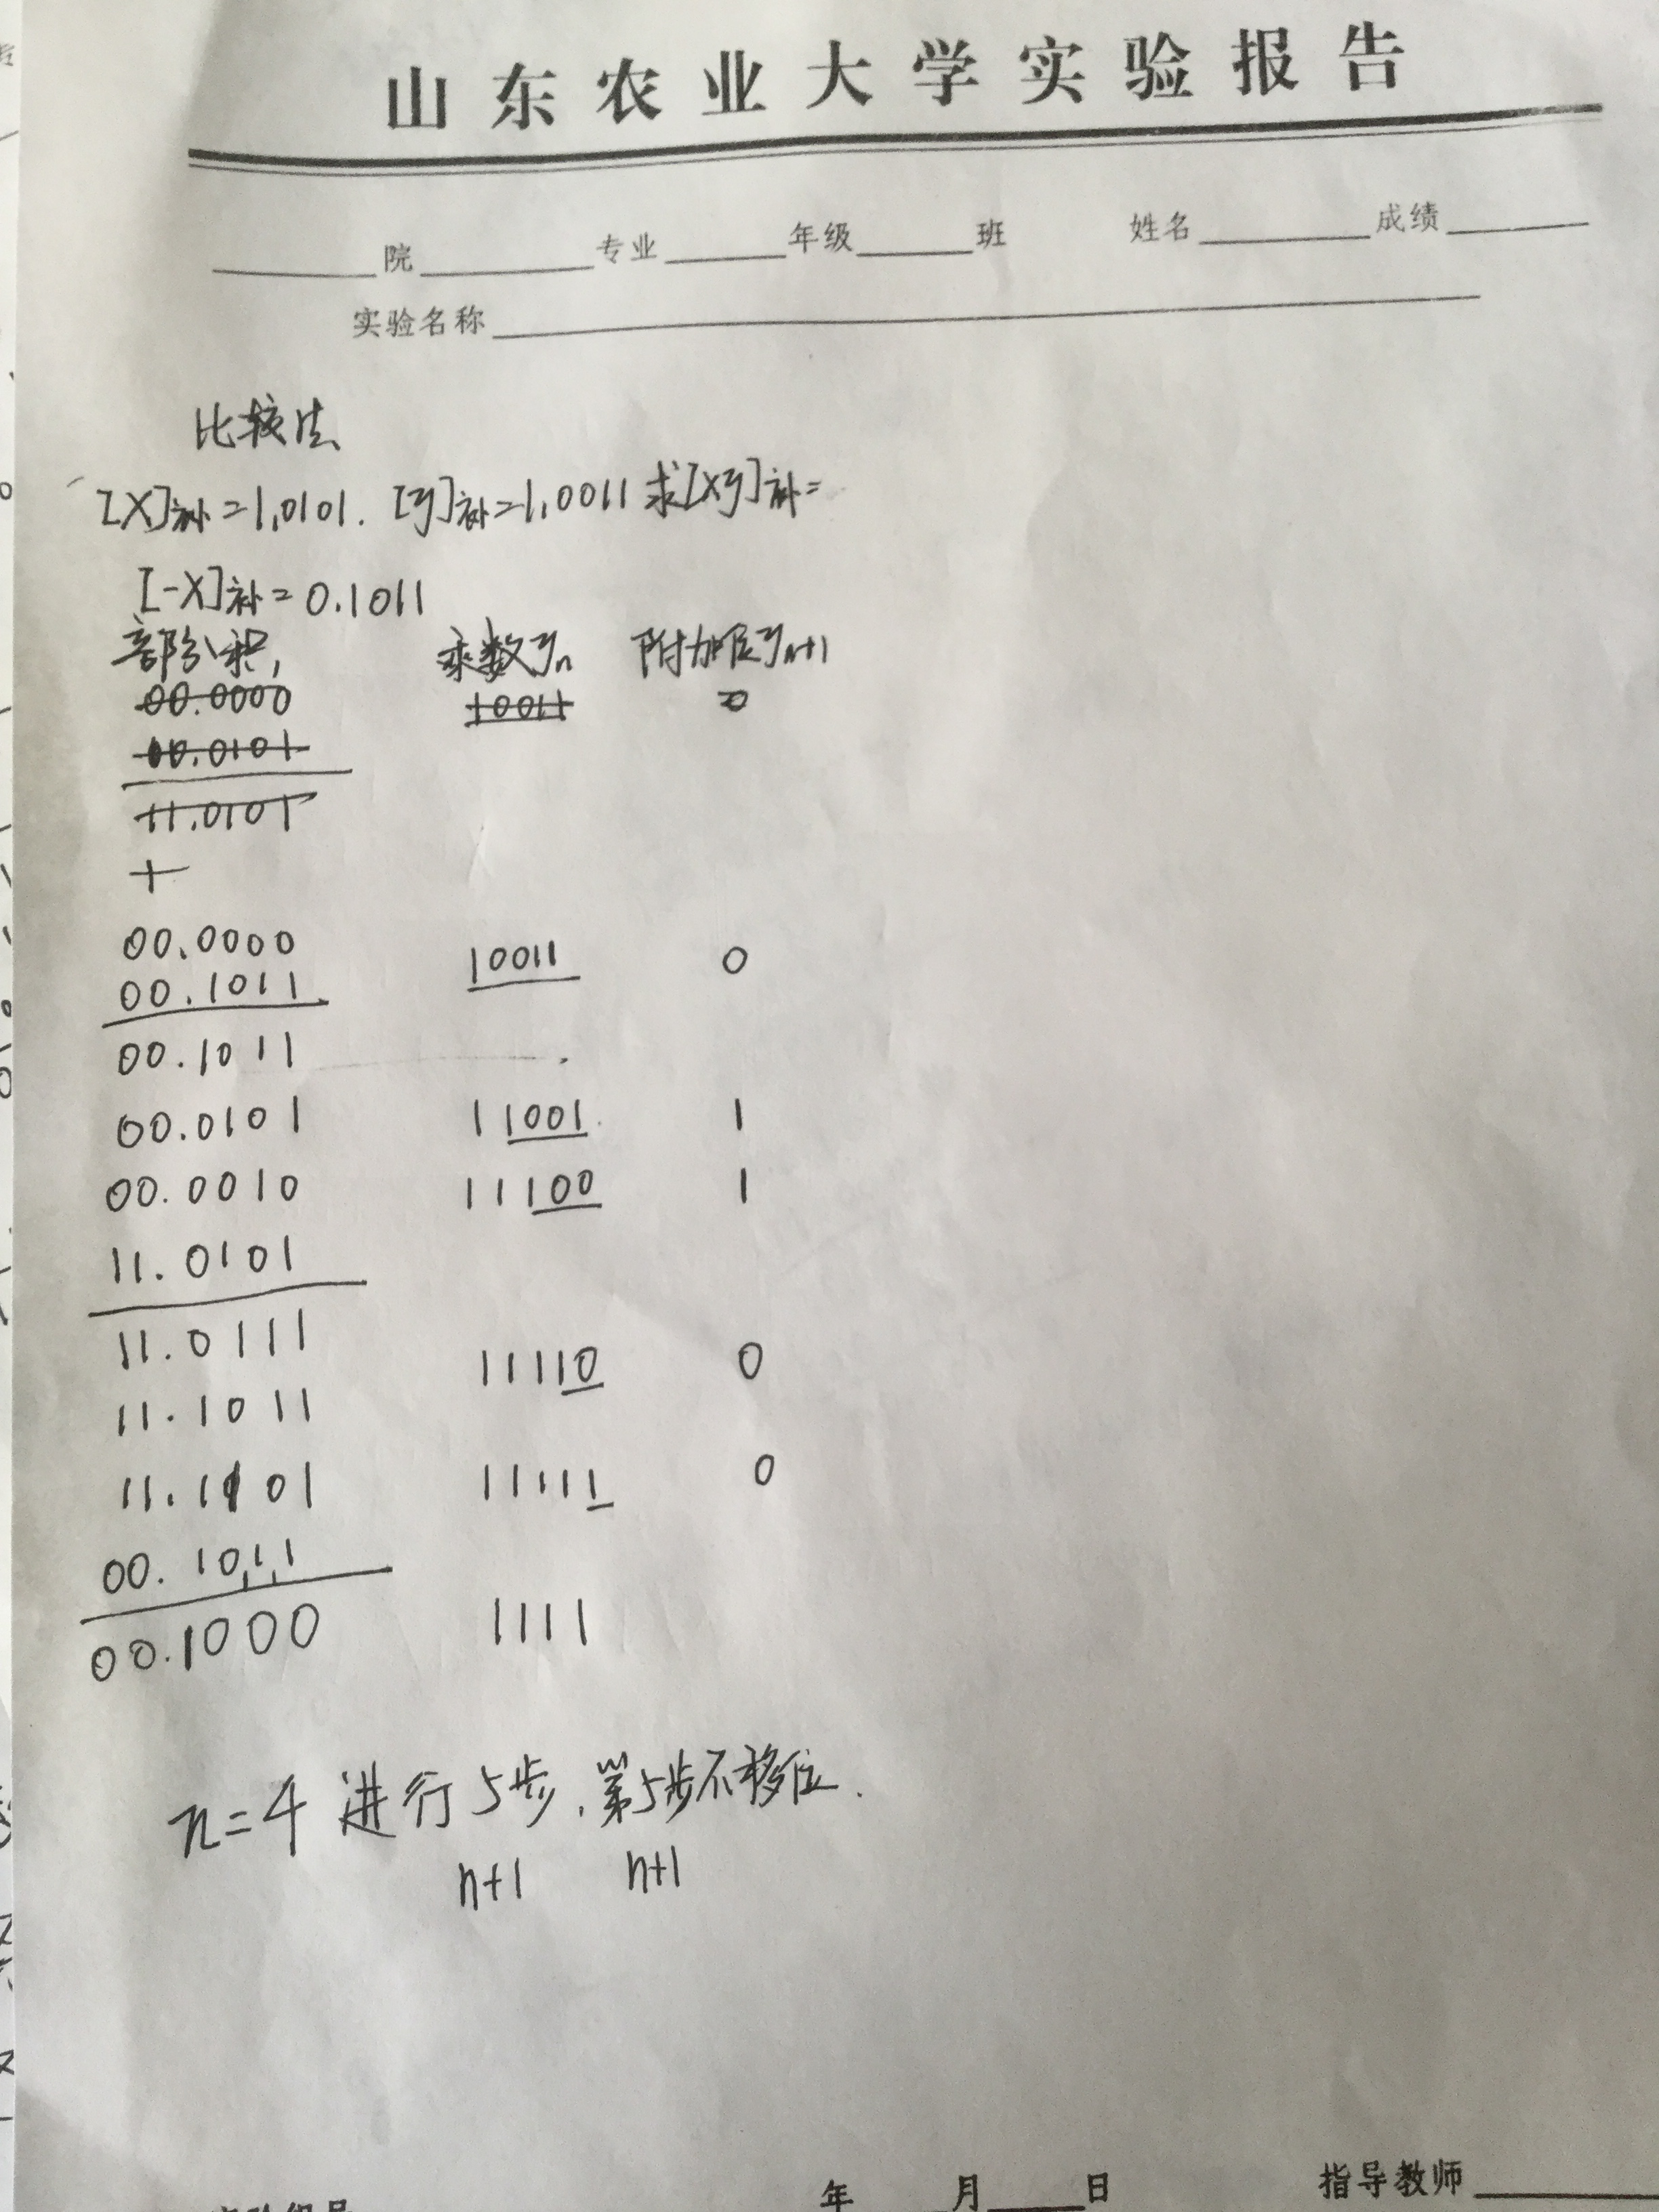 山东农业大学实验报告
院 专业 年级 班 姓名 成绩
实验名称
比较法
[X]补=1.0101. [y]补=1.0011 求[Xy]补=
[-X]补=0.1011
部分积 乘数yn 附加位yn+1
00.0000 10011 0
00.0101
11.0101
+
00.0000 10011 0
00.1011
00.1011
00.0101 11001 1
00.0010 11100 1
11.0101
11.0111 11110 0
11.1011
11.1101 11111 0
00.1011
00.1000 1111
n=4 进行5步.第5步不移位.
n+1 n+1
年 月 日 指导教师